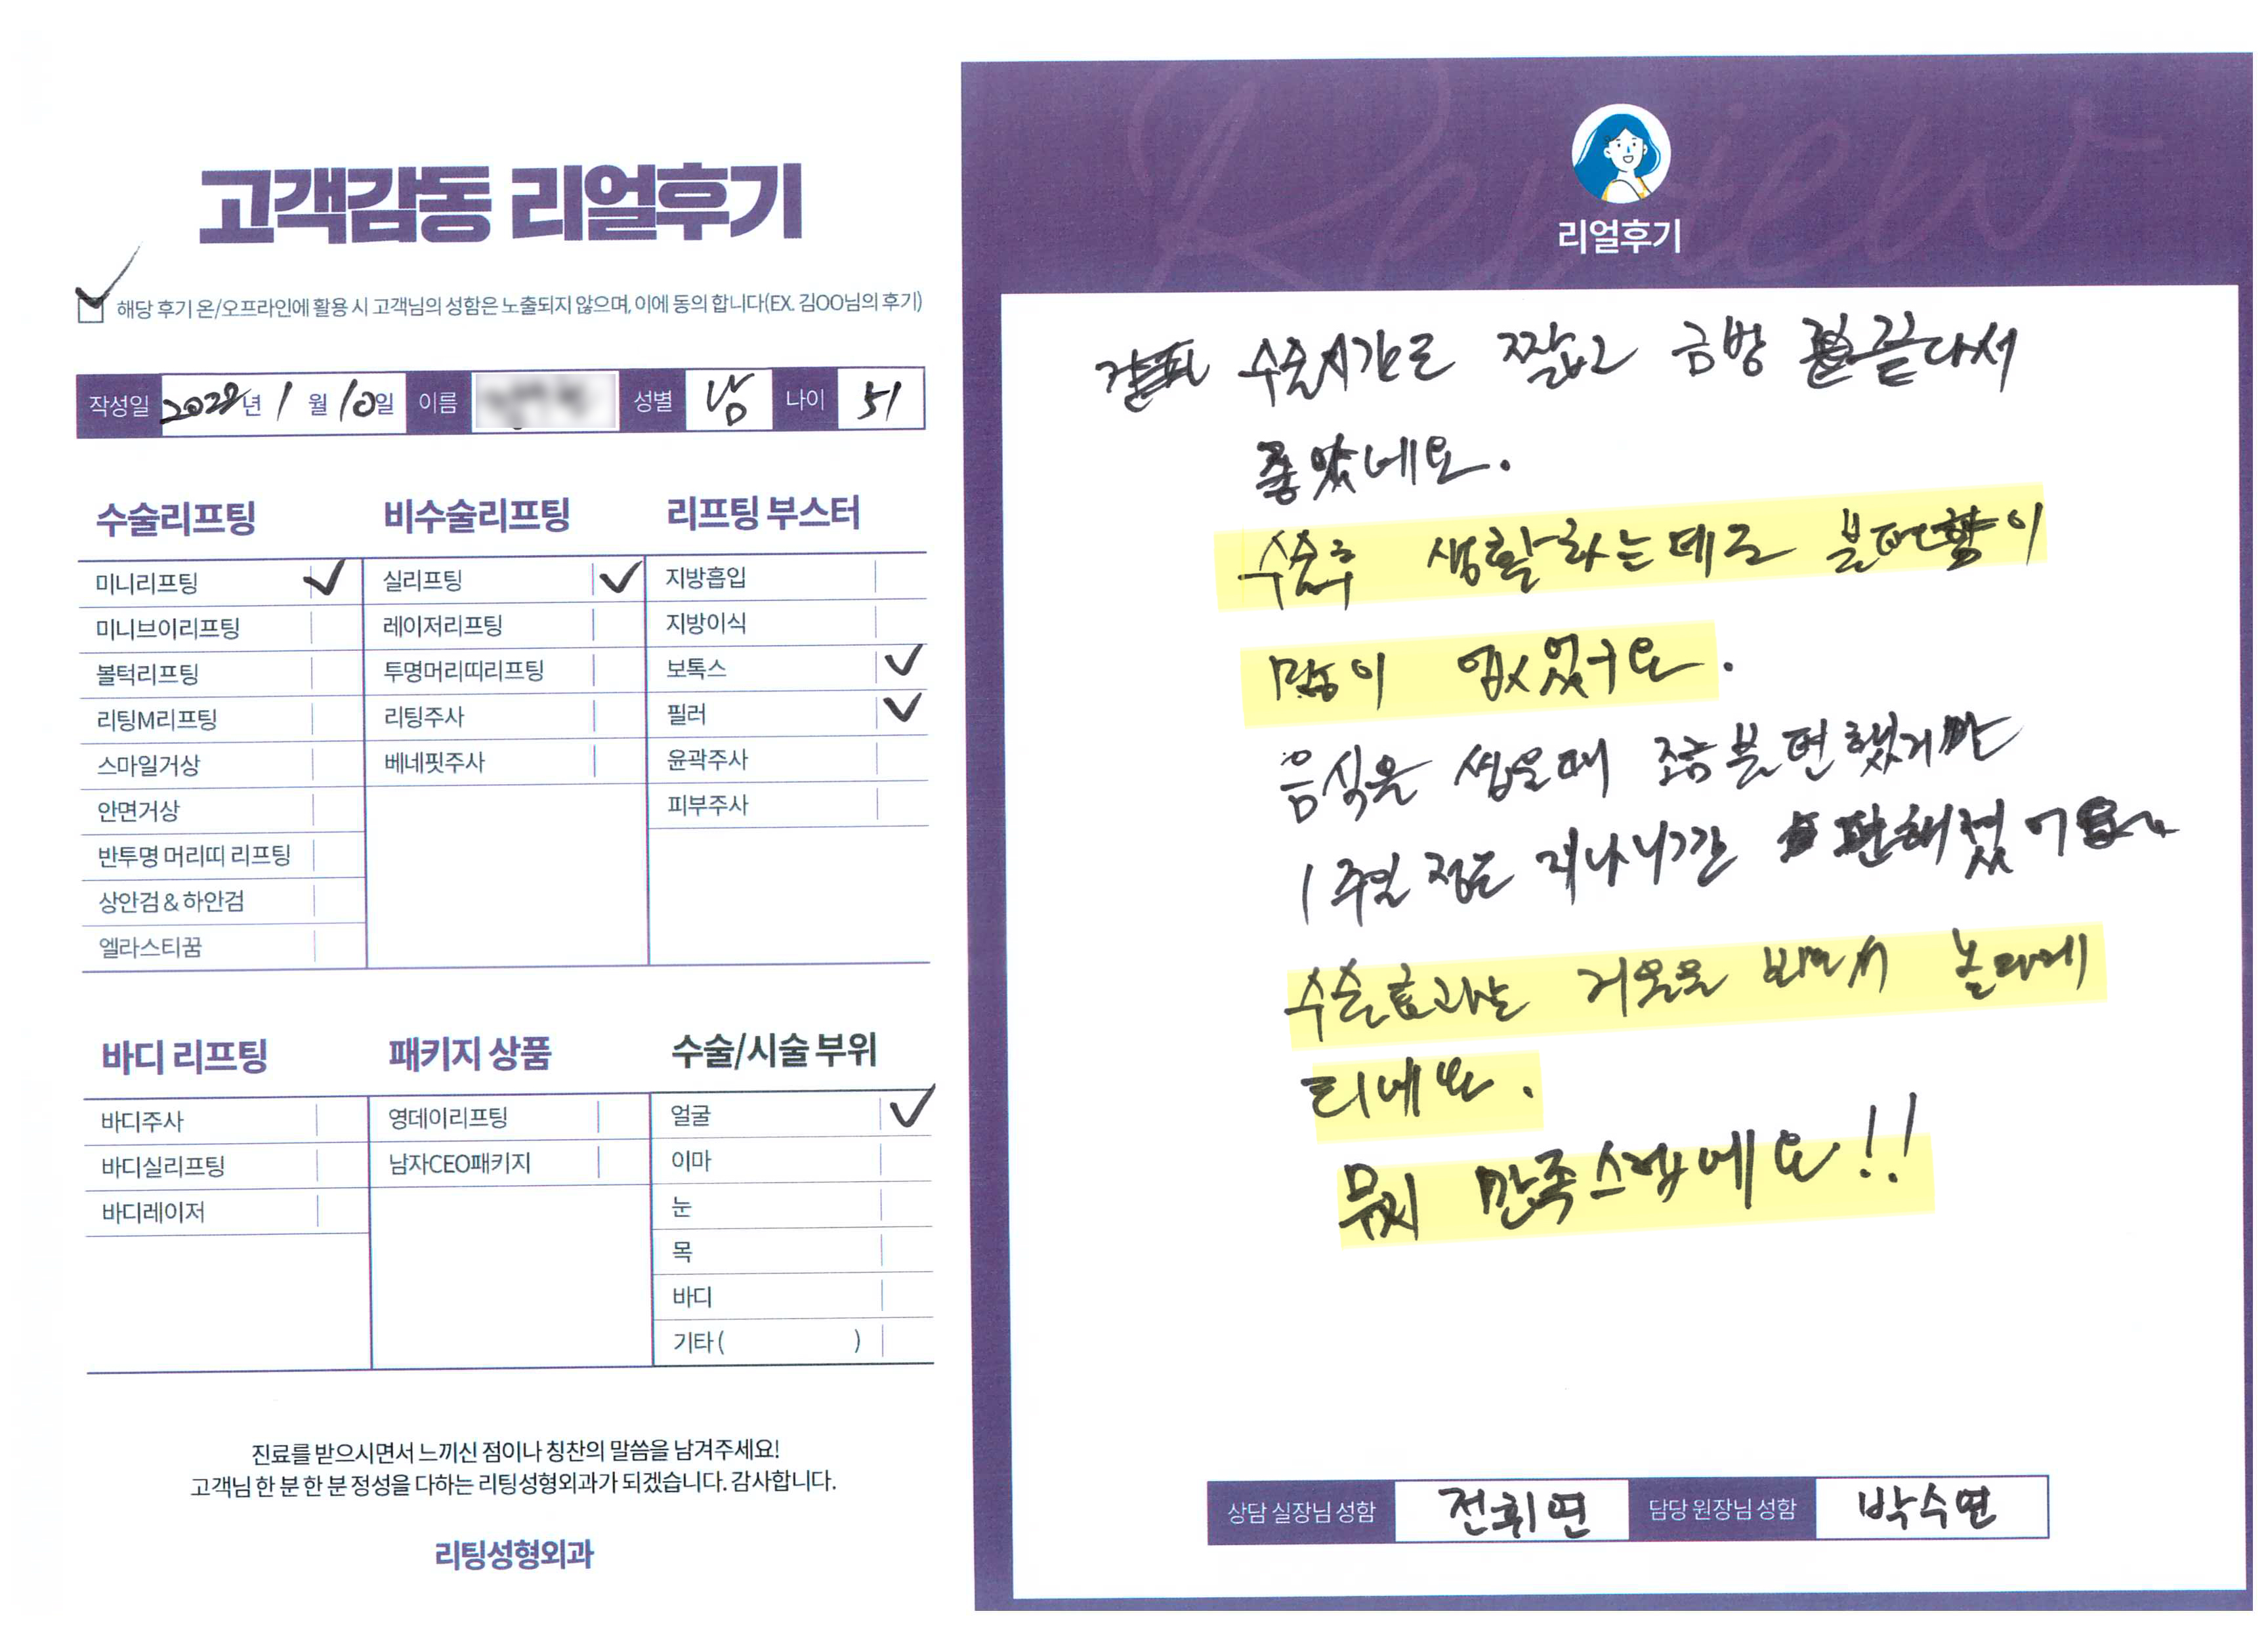 고객감동 리얼후기
해당 후기 온/오프라인에 활용 시 고객님의 성함은 노출되지 않으며, 이에 동의 합니다(EX. 김OO님의 후기)
작성일 2022년 1월 10일 이름 성별 남 나이 51
수술리프팅
미니리프팅
미니브이리프팅
볼턱리프팅
리팅M리프팅
스마일거상
안면거상
반투명 머리띠 리프팅
상안검 & 하안검
엘라스티꿈
비수술리프팅
실리프팅
레이저리프팅
투명머리띠리프팅
리팅주사
베네핏주사
리프팅 부스터
지방흡입
지방이식
보톡스
필러
윤곽주사
피부주사
바디 리프팅
바디주사
바디실리프팅
바디레이저
패키지 상품
영데이리프팅
남자CEO패키지
수술/시술 부위
얼굴
이마
눈
목
바디
기타 ( )
진료를 받으시면서 느끼신 점이나 칭찬의 말씀을 남겨주세요!
고객님 한 분 한 분 정성을 다하는 리팅성형외과가 되겠습니다. 감사합니다.
리팅성형외과
Review
리얼후기
수술시간도 짧고 금방 끝나서
좋았네요.
수술후 생활하는데도 불편함이
많이 없었구요.
음식을 씹을때 조금 불편했지만
1주일 정도 지나니깐 편해졌어요
수술효과는 거울을 놀라게
되네요.
무지 만족스럽네요!!
상담 실장님 성함 전휘연 담당 원장님 성함 박수연